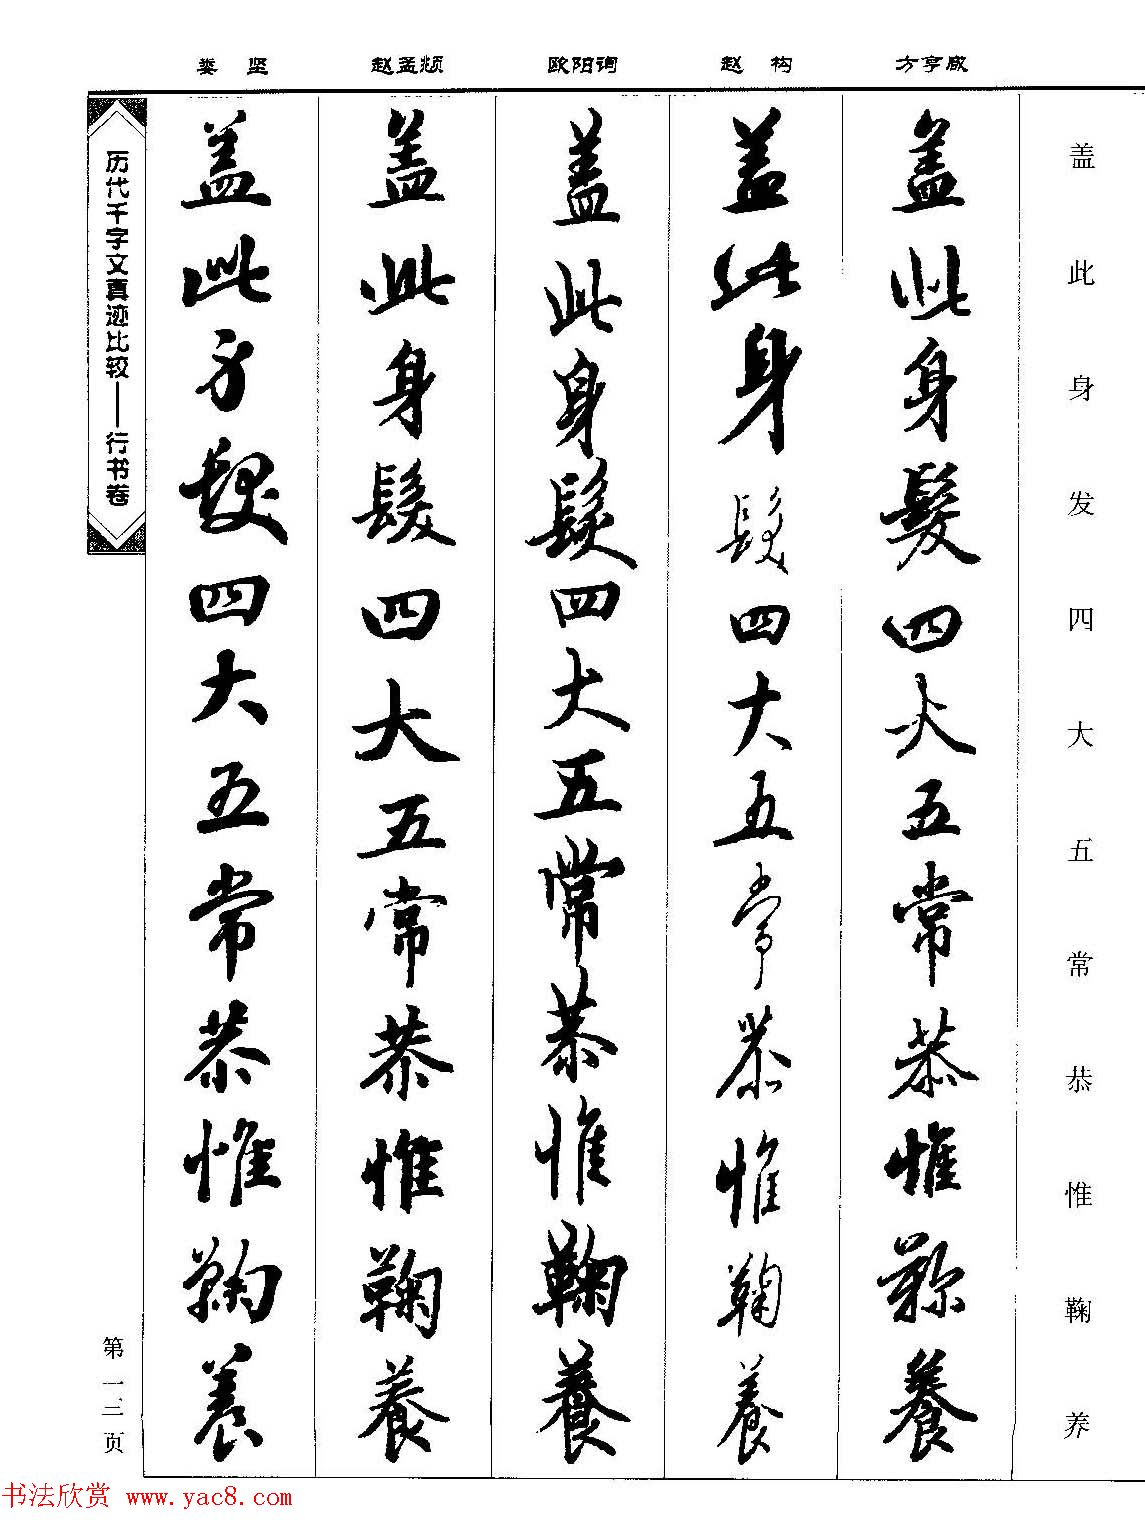 娄坚 赵孟頫 欧阳询 赵构 方亨咸
盖此身发四大五常恭惟鞠养
盖此身髮四大五常恭惟鞠養
盖此身髮四大五常恭惟鞠養
盖此身髮四大五常恭惟鞠養
盖此身髮四大五常恭惟鞠養
盖此身髮四大五常恭惟鞠養
历代千字文真迹比较——行书卷
第一三页
书法欣赏 www.yac8.com